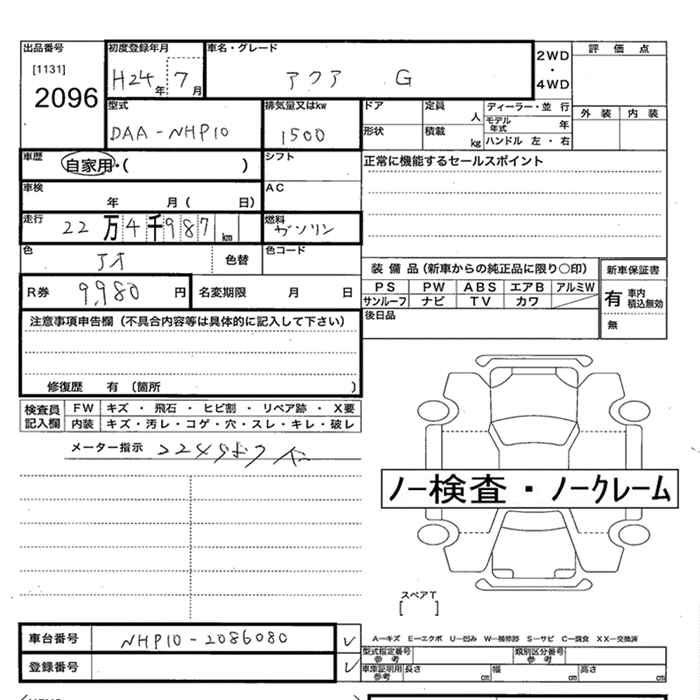 出品番号 初度登録年月 車名・グレード 2WD・4WD 評価点
[1131] 2096 H24年 7月 アクア G
型式 排気量又はkw ドア 定員 人 ディーラー・並 行 外装 内装
DAA-NHP10 1500 形状 積載 kg モデル年式 年 ハンドル 左・右
車歴 自家用・( ) シフト 正常に機能するセールスポイント
車検 年 月( 日) AC
走行 22万4千987km 燃料 ガソリン
色 アオ 色替 色コード 装備品(新車からの純正品に限り○印) 新車保証書
R券 9,980円 名変期限 月 日 PS PW ABS エアB アルミW 有 車内積込無効
サンルーフ ナビ TV カワ
注意事項申告欄(不具合内容等は具体的に記入して下さい) 後日品 無
修復歴 有(箇所 )
検査員記入欄 FW キズ・飛石・ヒビ割・リペア跡・X要
内装 キズ・汚レ・コゲ・穴・スレ・キレ・破レ
メーター指示 224987
ノー検査・ノークレーム
スペアT
[ ]
車台番号 NHP10-2086080 A−キズ E−エクボ U−凹み W−補修跡 S−サビ C−腐食 XX−交換済
型式指定番号 参考 類別区分番号 参考
登録番号 車庫証明用 参考 長さ cm 幅 cm 高さ cm